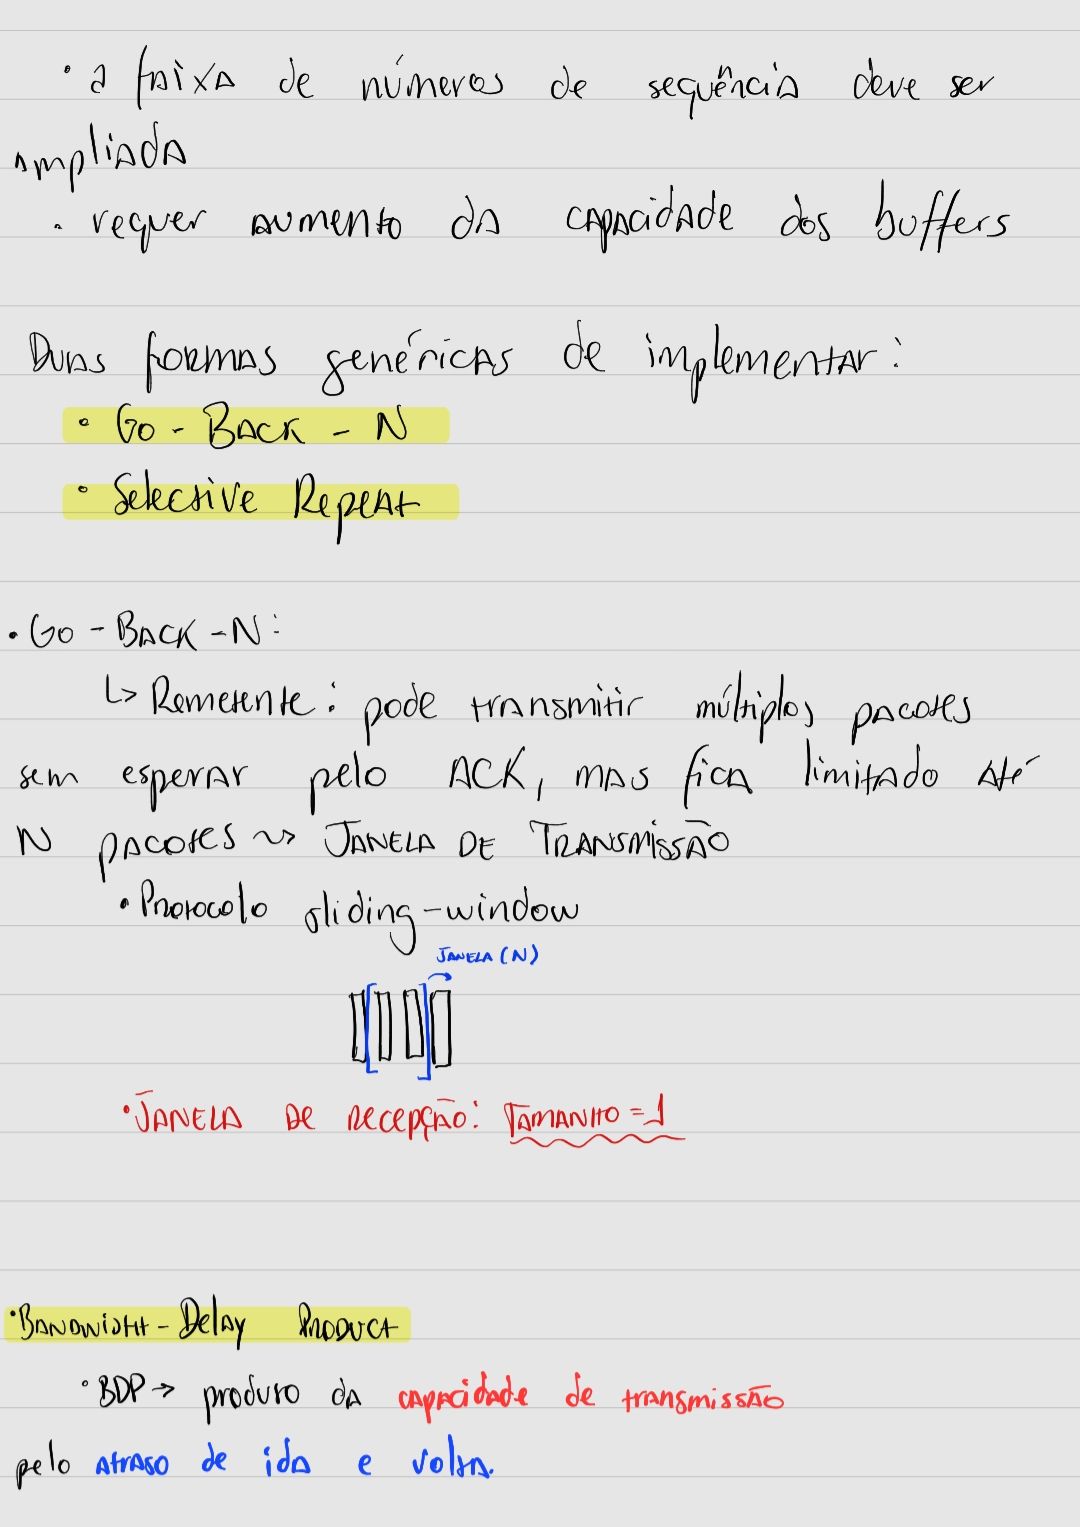 • a faixa de números de sequência deve ser
ampliada
• requer aumento da capacidade dos buffers
Duas formas genéricas de implementar:
• Go - Back - N
• Selective Repeat
• Go - Back - N:
↳ Remetente: pode transmitir múltiplos pacotes
sem esperar pelo ACK, mas fica limitado até
N pacotes ~> JANELA DE TRANSMISSÃO
• Protocolo sliding-window
JANELA (N)
• JANELA DE RECEPÇÃO: TAMANHO = 1
• BANDWIDTH - Delay PRODUCT
• BDP → produto da capacidade de transmissão
pelo atraso de ida e volta.